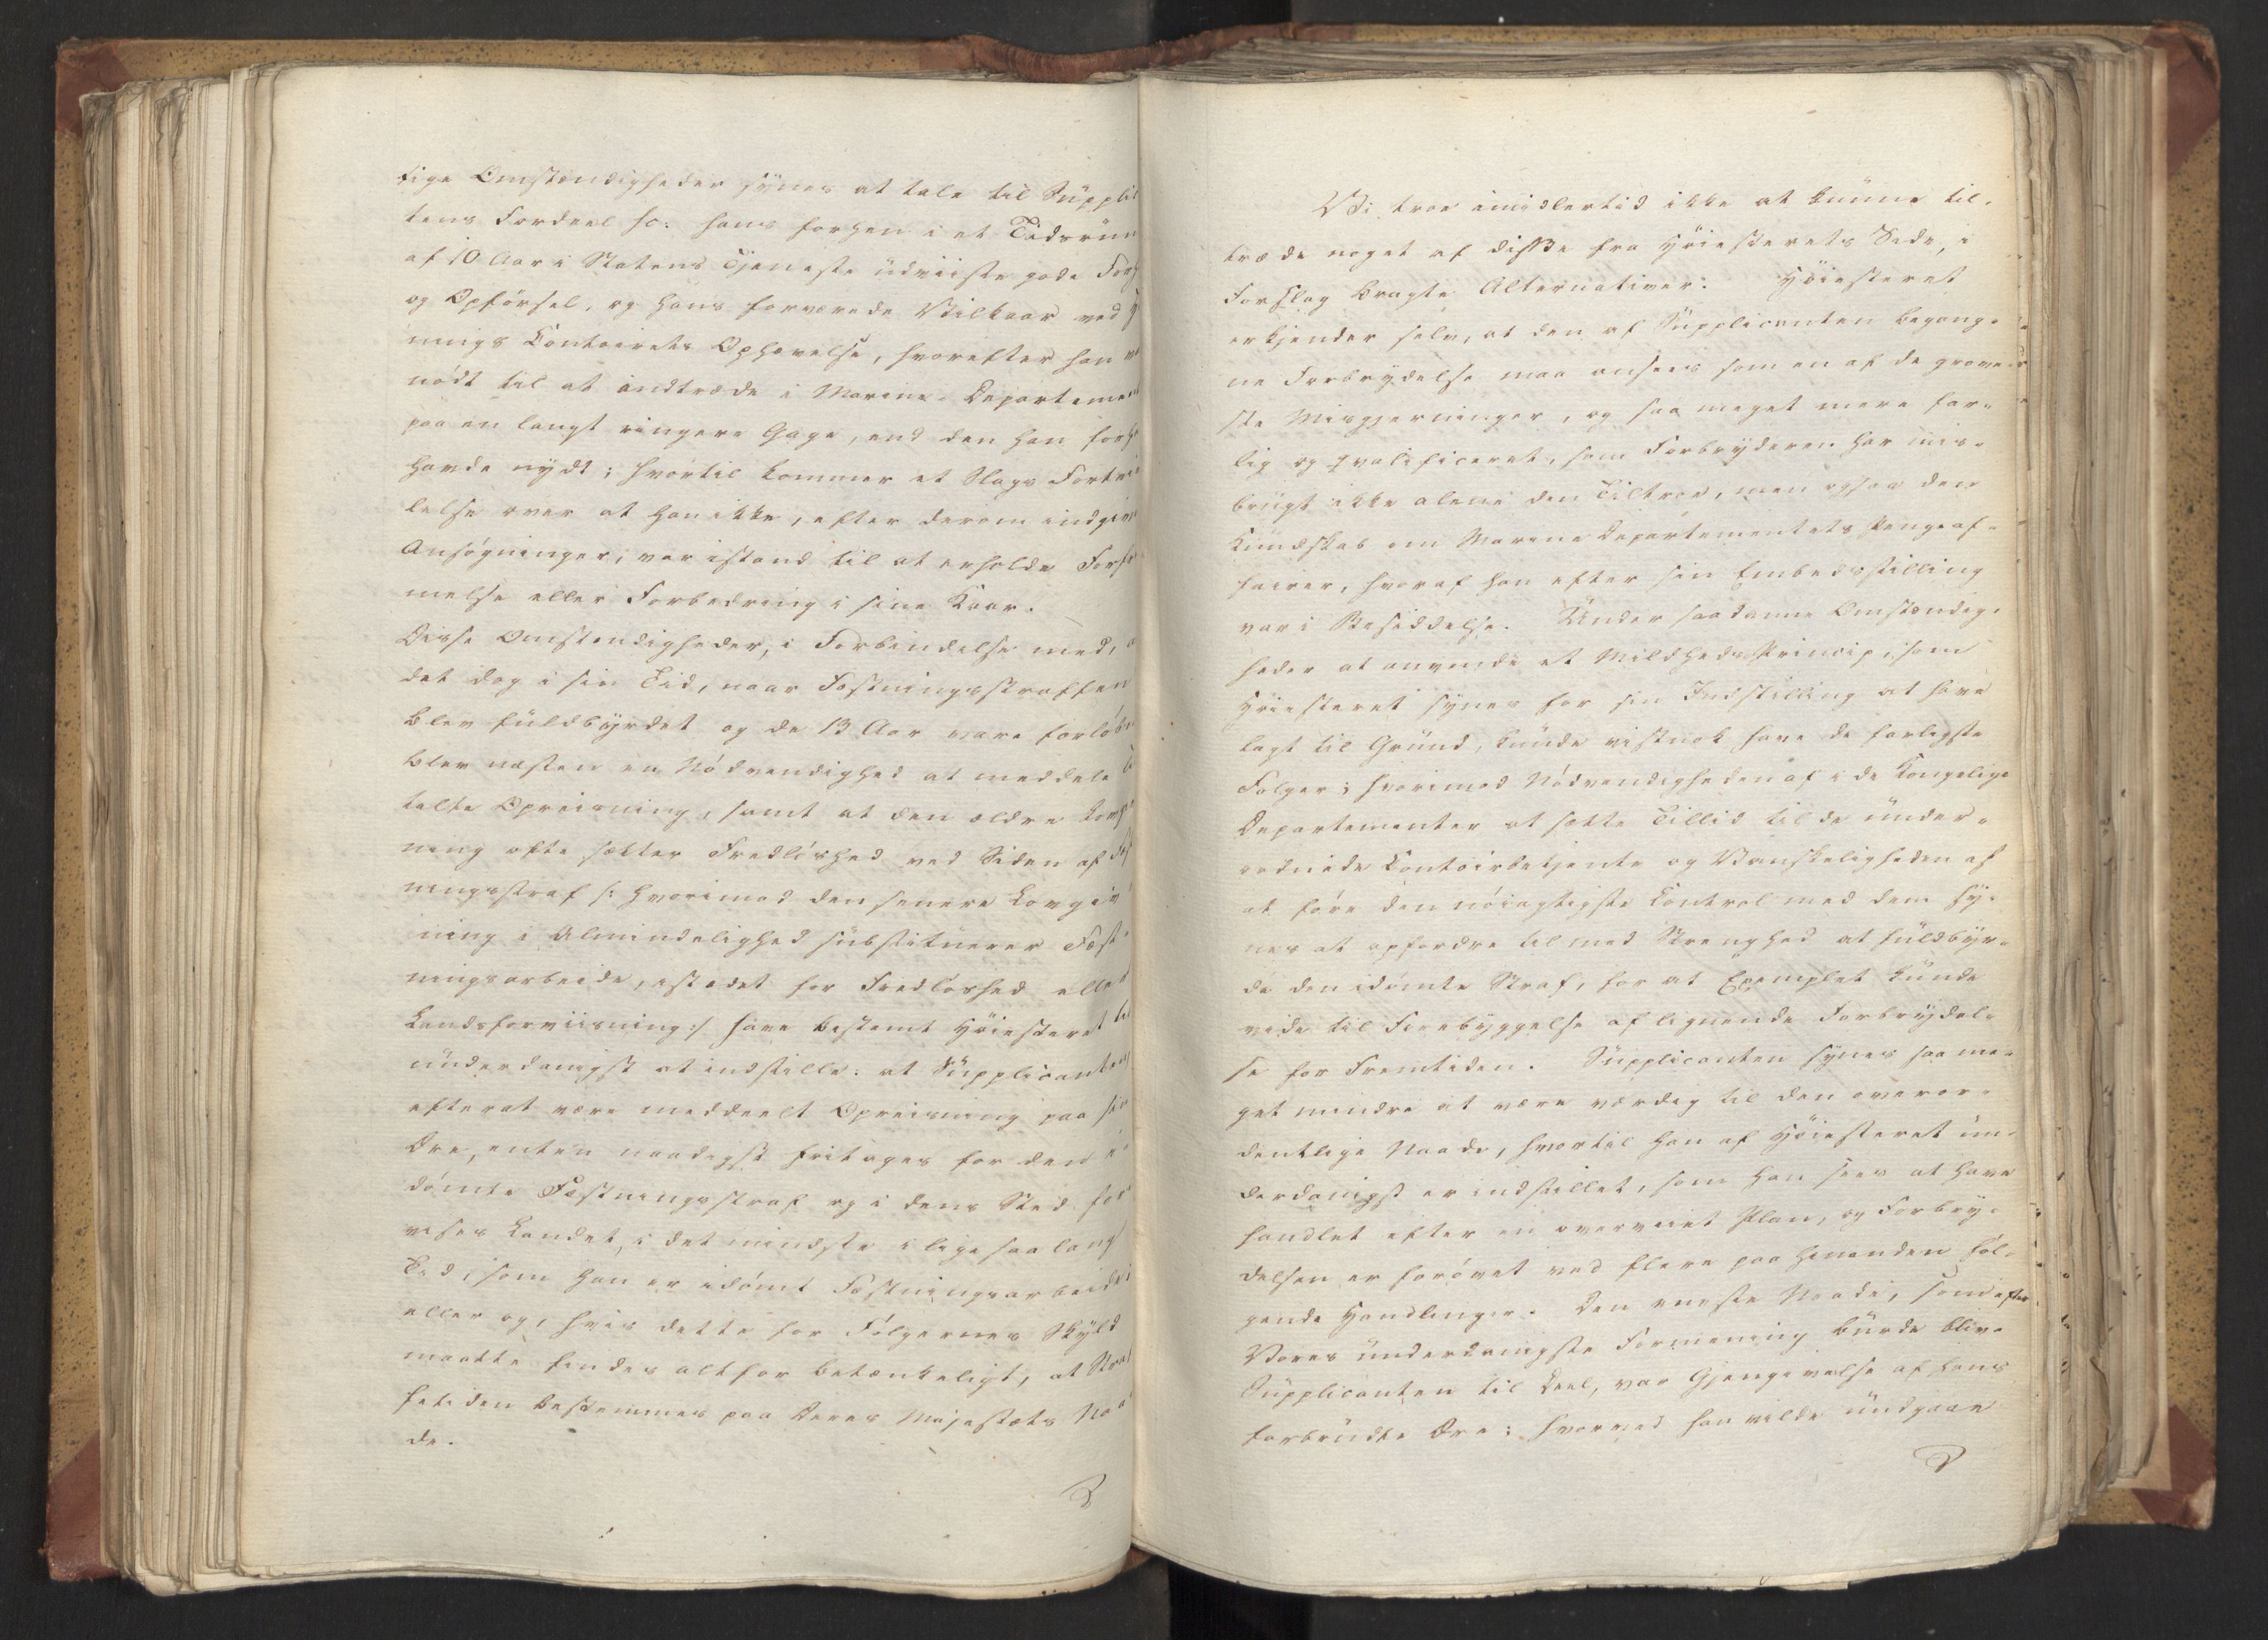 tige Omstændigheder synes at tale til Supplic
tens Fordeel so: hans forhen i et Tidsrum
af 10 Aar i Statens Tjeneste udviiste gode Forh
og Opførsel, og hans forværrede Vilkaar ved
nings Contoirets Ophævelse, hvorefter han
nødt til at indtræde i Marine-Departement
paa en langt ringere Gage, end den han forh
havde nydt; hvortil kommer et Slags Fortvi
lelse over at han ikke, efter derom indgivne
Ansøgninger, var istand til at erholde Forfr
melse eller Forbedring i sine Kaar.
Disse Omstændigheder, i Forbindelse med,
det dog i sin Tid, naar Fæstningsstraffen
blev fuldbyrdet og de 13 Aar vare forløbne
blev næsten en Nødvendighed at meddele
talte Opreisning, samt at den ældre Lovgi
ning ofte sætter Fredløshed ved Siden af Fæst
ningsstraf /: hvorimod den senere Lovgiv
ning i Almindelighed substituerer Fæst-
ningsarbeide, istedet for Fredløshed eller
Landsforviisning :/ have bestemt Høiesteret til
underdanigst at indstille: at Supplicanten
efterat være meddeelt Opreisning paa sin
Ære, enten naadigst fritages for den i-
dømte Fæstningsstraf og i dens Sted for
vises Landet, i det mindste i lige saa lang
Tid, som han er idømt Fæstningsarbeide;
eller og, hvis dette for Følgernes Skyld
maatte findes altfor betænkeligt, at Straf
fetiden bestemmes paa Deres Majestæts Naa
de.
Vi troe imidlertid ikke at kunne til-
træde noget af disse fra Høiesterets Side, i
Forslag bragte Alternativer. Høiesteret
erkjender selv, at den af Supplicanten begang-
ne Forbrydelse maa ansees som en af de grove-
ste Misgjerninger, og saa meget mere far-
lig og qvalificeret, som Forbryderen har mis-
brugt ikke alene den Tiltroe, men ogsaa den
Kundskab om Marine Departementets Pengeaf-
fairer, hvoraf han efter sin Embedsstilling
var i Besiddelse. Under saadanne Omstændig-
heder at anvende et Mildheds Princip, som
Høiesteret synes for sin Indstilling at have
lagt til Grund, kunde vistnok have de farligste
Følger; hvorimod Nødvendigheden af i de Kongelige
Departementer at sætte Tillid til de under-
ordnede Contoirbetjente og Vanskeligheden af
at føre den nøiagtigste Control med dem sy-
nes at opfordre til med Strenghed at fuldbyr-
de den idømte Straf, for at Exemplet kunde
virke til Forebyggelse af lignende Forbrydel-
se for Fremtiden. Supplicanten synes saa me-
get mindre at være værdig til den overor-
dentlige Naade, hvortil han af Høiesteret un-
derdanigst er indstillet, som han sees at have
handlet efter en overveiet Plan, og Forbry-
delsen er forøvet ved flere paa hinanden føl-
gende Handlinger. Den eneste Naade, som efter
Vores underdanigste Formening burde blive
Supplicanten til Deel, var Gjengivelse af hans
forbrudte Ære; hvorved han vilde undgaae